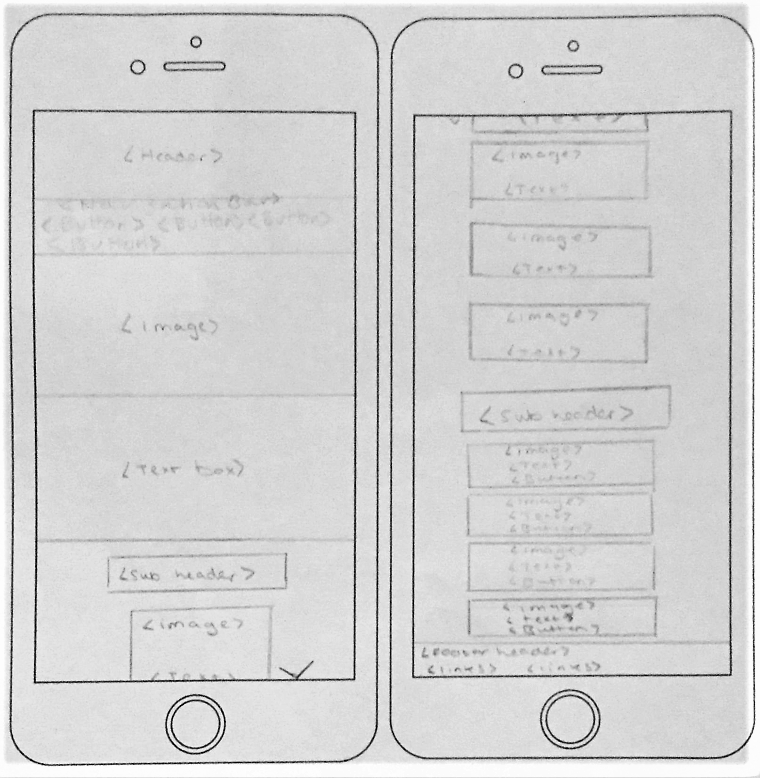 <Header>
<Navigation Bar>
<Button> <Button> <Button>
<Button>
<image>
<Text box>
<Sub header>
<image>
<Text>
<Text>
<image>
<Text>
<image>
<Text>
<image>
<Text>
<Sub header>
<image>
<Text>
<Button>
<image>
<Text>
<Button>
<image>
<Text>
<Button>
<image>
<Text>
<Button>
<Footer header>
<links> <links>